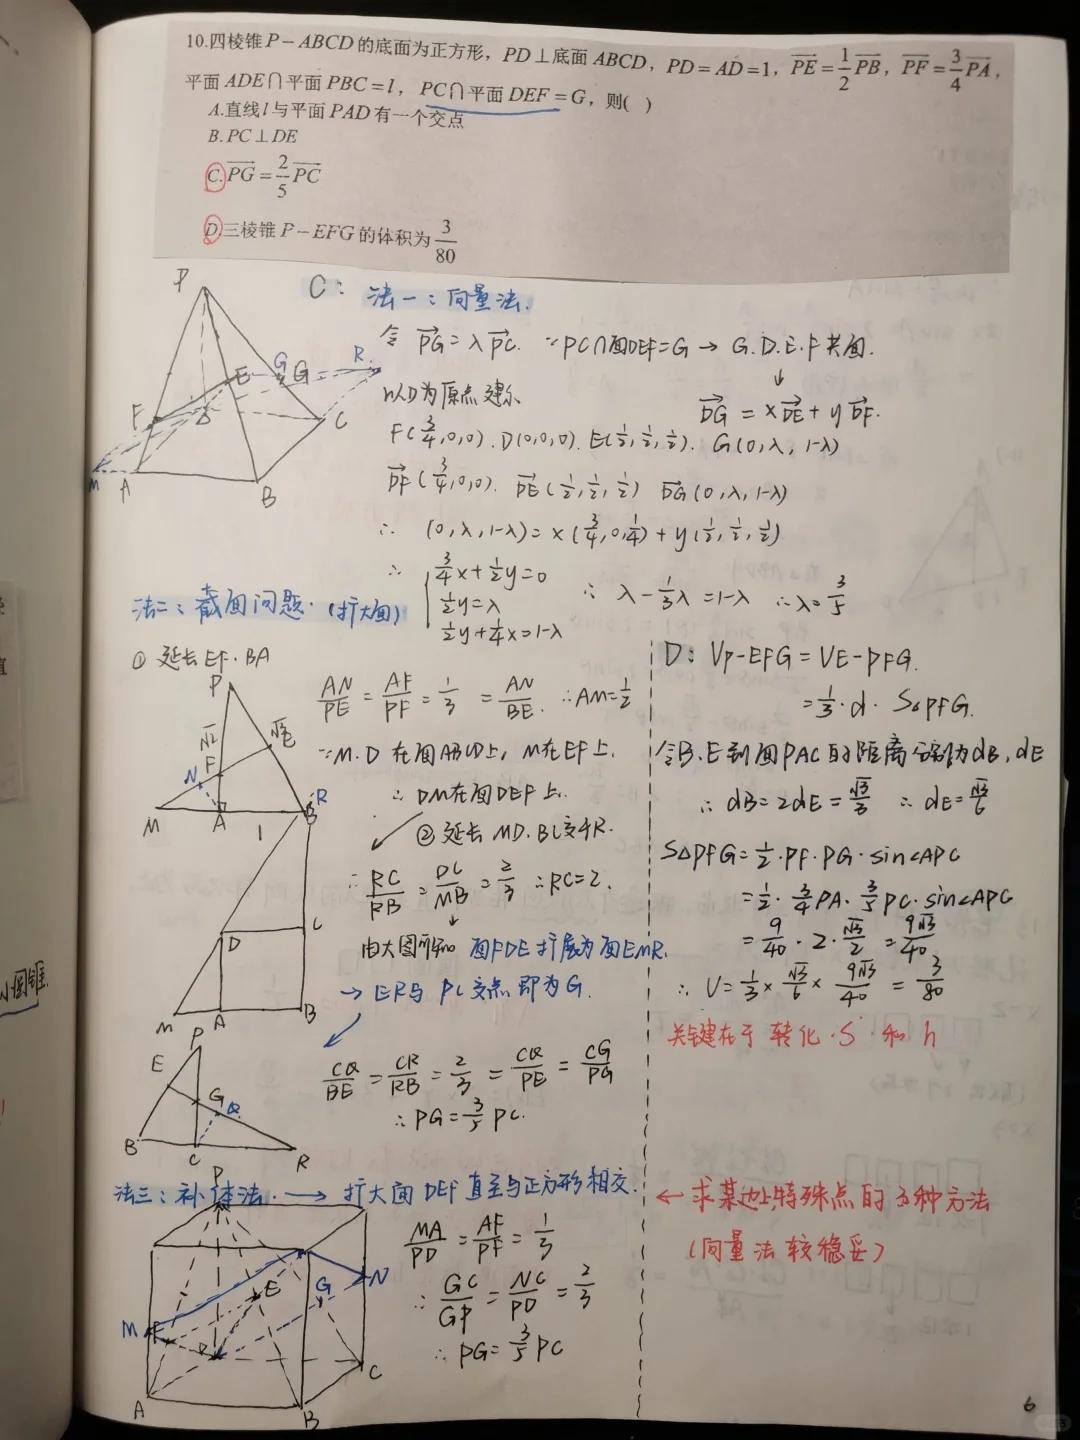 10.四棱锥P-ABCD的底面为正方形，PD⊥底面ABCD，PD=AD=1，\overrightarrow{PE}=\frac{1}{2}\overrightarrow{PB}，\overrightarrow{PF}=\frac{3}{4}\overrightarrow{PA}，
平面ADE∩平面PBC=l，PC∩平面DEF=G，则( )
A.直线l与平面PAD有一个交点
B.PC⊥DE
C.\overrightarrow{PG}=\frac{2}{5}\overrightarrow{PC}
D.三棱锥P-EFG的体积为\frac{3}{80}
C: 法一：向量法.
令 \overrightarrow{PG}=λ\overrightarrow{PC}. ∵PC∩面DEF=G → G.D.E.F共面.
以D为原点建系
↓
\overrightarrow{DG}=x\overrightarrow{DE}+y\overrightarrow{DF}.
F(\frac{3}{4},0,0).D(0,0,0).E(\frac{1}{2},\frac{1}{2},\frac{1}{2}). G(0,λ,1-λ)
\overrightarrow{DF}(\frac{3}{4},0,0). \overrightarrow{DE}(\frac{1}{2},\frac{1}{2},\frac{1}{2}) \overrightarrow{DG}(0,λ,1-λ)
∴ (0,λ,1-λ)=x(\frac{3}{4},0,\frac{1}{4})+y(\frac{1}{2},\frac{1}{2},\frac{1}{2})
∴ \frac{3}{4}x+\frac{1}{2}y=0
\frac{1}{2}y=λ
\frac{1}{2}y+\frac{1}{4}x=1-λ
∴ λ-\frac{1}{3}λ=1-λ ∴λ=\frac{3}{5}
P
E
G
G
R.
F
D
C
M
A
B
法二：截面问题.(扩大面)
① 延长EF.BA
P
√2
√3
E
F
N
M
A
1
B
R
\frac{AN}{PE}=\frac{AF}{PF}=\frac{1}{3}=\frac{AN}{BE}. ∴AM=\frac{1}{2}
∵M.D在面ABCD上，M在EF上.
∴DM在面DEF上.
② 延长MD.BC交于R.
∴\frac{RC}{RB}=\frac{DC}{MB}=\frac{2}{3} ∴RC=2.
↓
由大图可知 面FDE扩展为面EMR.
→ ER与PC交点即为G.
D
C
M
A
B
P
E
G
Q
B
C
R
\frac{CQ}{BE}=\frac{CR}{RB}=\frac{2}{3}=\frac{CQ}{PE}=\frac{CG}{PG}
∴PG=\frac{3}{5}PC.
D: VP-EFG=VE-PFG.
=\frac{1}{3}·d·S△PFG.
令B.E到面PAC的距离分别为dB，dE
∴dB=2dE=\frac{√3}{3} ∴dE=\frac{√3}{6}
S△PFG=\frac{1}{2}·PF·PG·sin∠APC
=\frac{1}{2}·\frac{3}{4}PA·\frac{3}{5}PC·sin∠APC
=\frac{9}{40}·2·\frac{√3}{2}=\frac{9√3}{40}
∴V=\frac{1}{3}×\frac{√3}{6}×\frac{9√3}{40}=\frac{3}{80}
关键在于转化.S.和h
法三：补体法. → 扩大面DEF直至与正方形相交.
← 求某边上特殊点的3种方法
(向量法较稳妥)
\frac{MA}{PD}=\frac{AF}{PF}=\frac{1}{3}
∴\frac{GC}{GP}=\frac{NC}{PD}=\frac{2}{3}
∴PG=\frac{3}{5}PC
P
N
E
G
M
F
D
C
A
B
6